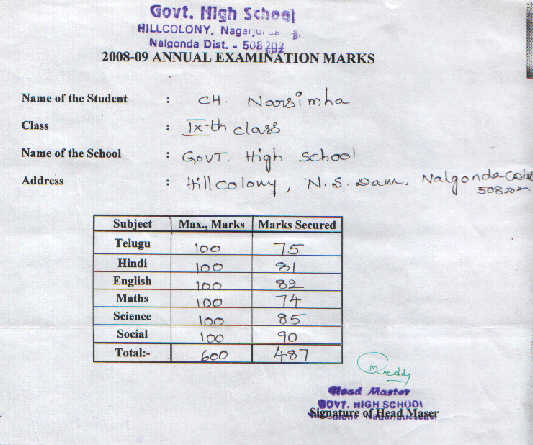 Govt. High School
HILLCOLONY,
Nalgonda Dist. - 508202
2008-09 ANNUAL EXAMINATION MARKS
Name of the Student : CH. Narsimha
Class : IX-th class
Name of the School : GOVT. High School
Address : Hillcolony, N.S. Dam. Nalgonda
508202
Subject Max., Marks Marks Secured
Telugu 100 75
Hindi 100 81
English 100 82
Maths 100 74
Science 100 85
Social 100 90
Total:- 600 487
Head Master
GOVT. HIGH SCHOOL
Signature of Head Maser